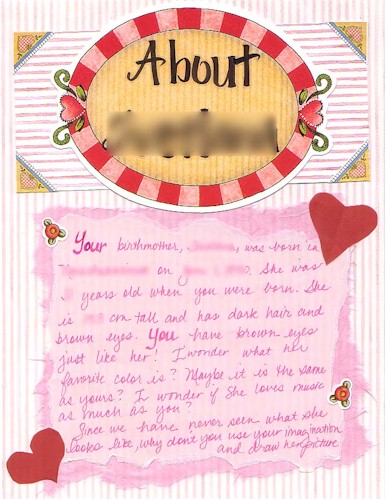 About
Your birthmother, was born in
on . She was
years old when you were born. She
is cm tall and has dark hair and
brown eyes. You have brown eyes
just like her! I wonder what her
favorite color is? Maybe it is the same
as yours? I wonder if she loves music
as much as you?
Since we have never seen what she
looks like, why don't you use your imagination
and draw her picture